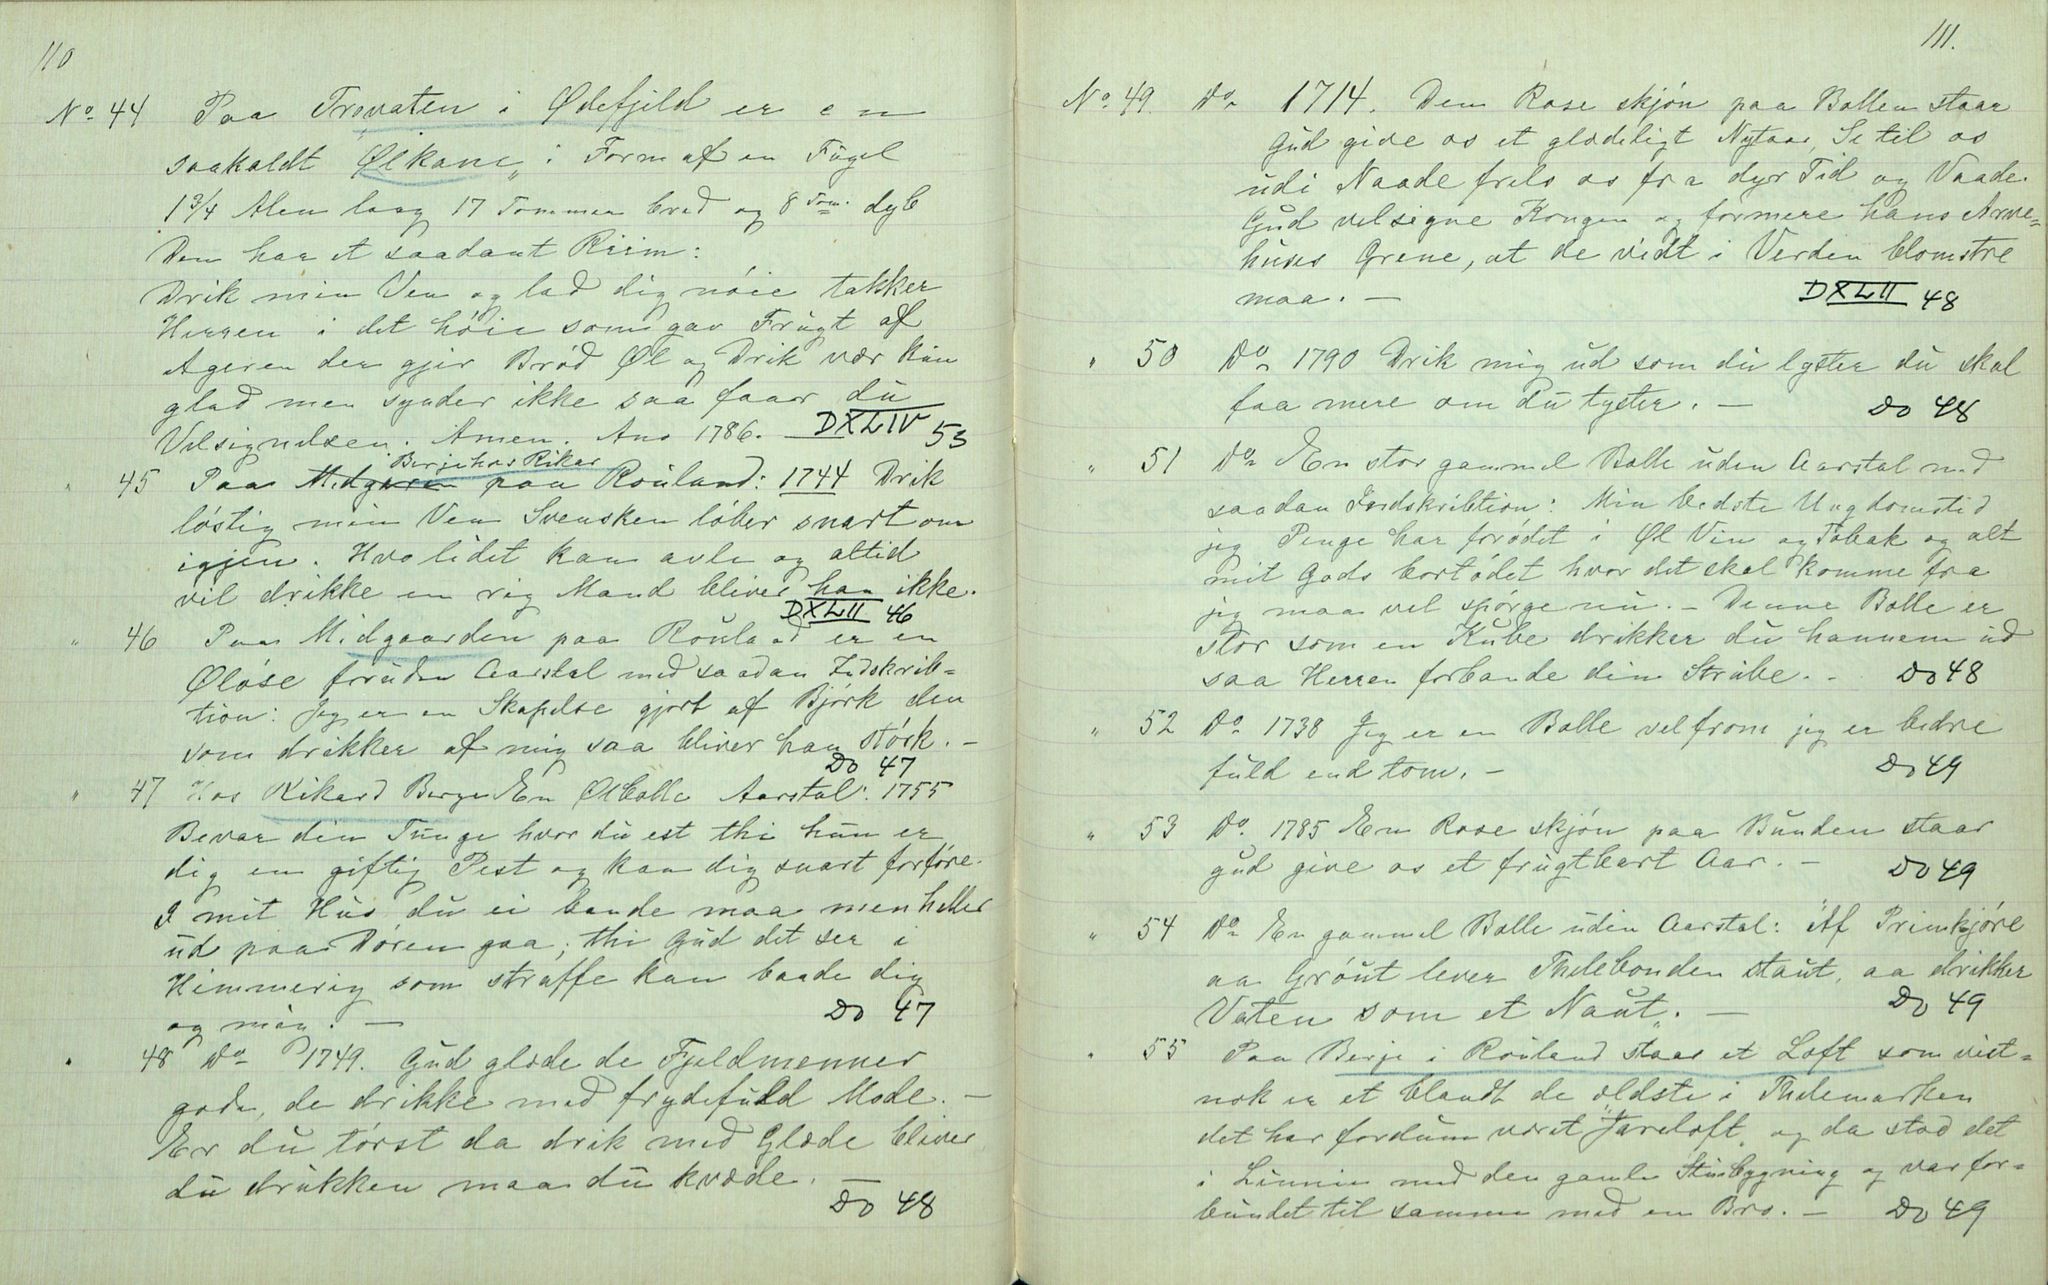 110
No 44 Paa Trovaten i Ødefjeld er en
saakaldt Ølkane, i Form af en Fugel
1 3/4 Alen lang 17 Tommer bred og 8 Tom. dyb
Den har et saadant Riim:
Drik min Ven og lad dig nóie takker
Herren i det hóie som gav Frugt af
Ageren der gjir Bród Øl og Drik vær kun
glad men synder ikke saa faaer du
Velsignelsen. Amen. Ano 1786. DXLIV 53
Berje hos Rikar
" 45 Paa Midgaren paa Rouland: 1744 Drik
lóstig min Ven Svensken lóber snart om
igjen. Hvo lidet kan avle og altid
vil drikke en rig Mand bliver han ikke.
DXLII 46
" 46 Paa Midgaarden paa Rouland er en
Ølóse foruden Aarstal med saadan Indskrib=
tion: Jeg er en Skapelse gjort af Bjórk den
som drikker af mig saa bliver han stórk. -
Do 47
" 47 Hos Rikard Berge En Ølbolle Aarstal: 1755
Bevar din Tunge hvor du est thi hun er
dig en giftig Pest og kan dig snart forfóre.
I mit Hus du ei bande maa men heller
ud paa Dóren gaa; thi Gud det ser i
Himmerig som straffe kan baade dig
og mig. - Do 47
" 48 Do 1749. Gud glæde de Fjeldmenner
gode, de drikke med frydefuld Mode. -
Er du tórst da drik med Glæde bliver
du drukken maa du kvæde. -
Do 48
111.
No 49. Do 1714. Den Rose skjón paa Bollen staar
Gud give os et glædeligt Nytaar, Se til os
udi Naade frels os fra dyr Tid og Vaade.
Gud velsigne Kongen og formere hans Arve=
huses Grene, at de vidt i Verden blomstre
maa. - DXLII 48
" 50 Do 1790 Drik mig ud som du lyster du skal
faa mere om du tyster. - Do 48
" 51 Do En stor gammel Bolle uden Aarstal med
saadan Indskribtion: Min bedste Ungdomstid
jeg Penge har foródet i Øl Vin og Tobak og alt
mit Gods bortódet hvor det skal komme fra
jeg maa vel spórge nu. - Denne Bolle er
stor som en Kube drikker du hannem ud
saa Herren forbande din Strube. - Do 48
" 52 Do 1738 Jeg er en Bolle vel from jeg er bedre
fuld end tom. - Do 49
" 53 Do. 1785 En Rose skjón paa Bunden staar
gud give os et frugtbart Aar. - Do 49
" 54 Do En gammel Bolle uden Aarstal: "Af Primkjóre
aa Gróut lever Thelebonden staut, aa drikker
Vaten som et Naut". - Do 49
" 55 Paa Berje i Rouland staar et Loft som vist=
nok er et blandt de ældste i Thelemarken
det har fordum været "Jareloft" og da stod det
i Linnie med den gamle Stuebygning og var for=
bundet til samme med en Bro. - Do 49